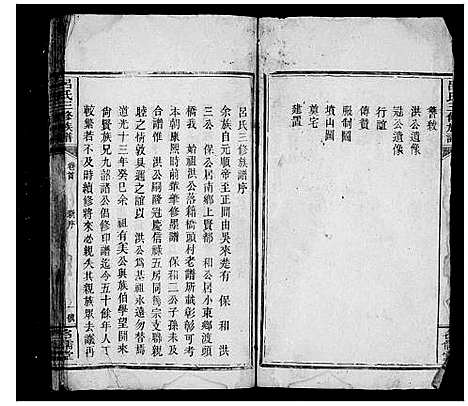 舊敘
洪公遺像
冠公遺像
行誼
傳贊
服制圖
墳山圖
奠宅
建置
呂氏三修族譜
呂氏三修族譜序
余族自元順帝至正間由吳來楚有 保 和 洪
三公 保公居南鄉上賢都 和公居小東鄉渡頭
橋我 始祖洪公落籍橋頭村老譜所載彰彰可考
本朝康熙時前輩華修墨譜 保和二公子孫未及
合譜惟 洪公嗣隆冠慶信祿五房同傳宗支聯親
睦之情敦具邇之誼以 洪公為基祖永遠勿替焉
道光十三年癸巳余 祖有美公與族伯學望開來
尙賢族兄九韶諸公倡修印譜迄今五十餘年人丁
較繁若不及時續修將來必親失其親族眾去議再
呂氏三修族譜
卷首
新序